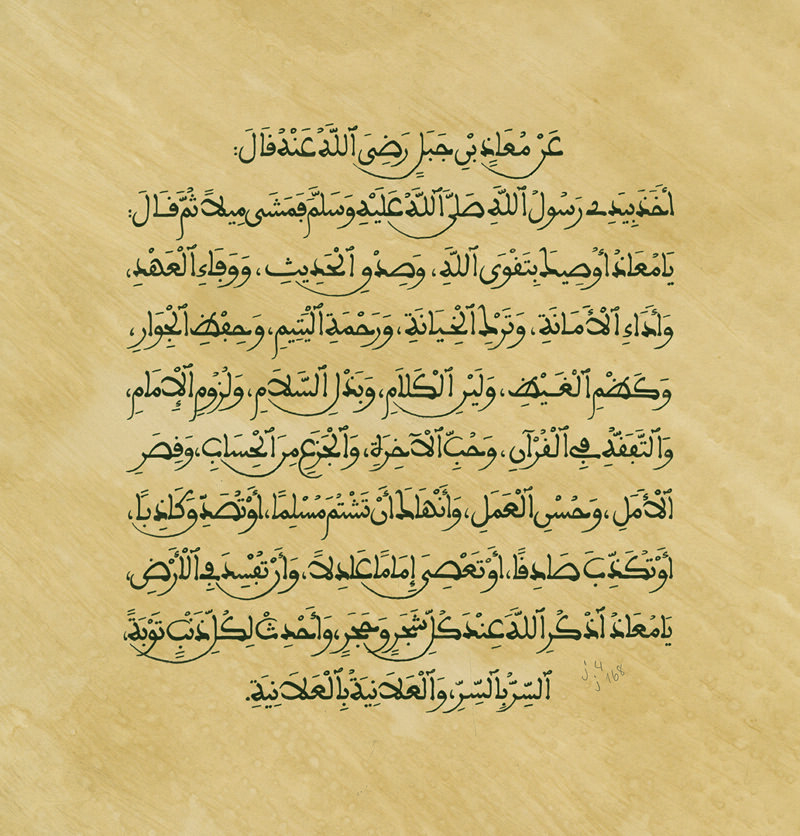 عَنْ مُعَاذِ بْنِ جَبَلٍ رَضِيَ ٱللَّهُ عَنْهُ قَالَ:
أَخَذَ بِيَدِي رَسُولُ ٱللَّهِ صَلَّى ٱللَّهُ عَلَيْهِ وَسَلَّمَ فَمَشَى مِيلاً ثُمَّ قَالَ:
يَا مُعَاذُ أُوصِيكَ بِتَقْوَى ٱللَّهِ، وَصِدْقِ ٱلْحَدِيثِ، وَوَفَاءِ ٱلْعَهْدِ،
وَأَدَاءِ ٱلْأَمَانَةِ، وَتَرْكِ ٱلْخِيَانَةِ، وَرَحْمَةِ ٱلْيَتِيمِ، وَحِفْظِ ٱلْجِوَارِ،
وَكَظْمِ ٱلْغَيْظِ، وَلَيْنِ ٱلْكَلَامِ، وَبَذْلِ ٱلسَّلَامِ، وَلُزُومِ ٱلْإِمَامِ،
وَٱلتَّفَقُّهِ فِي ٱلْقُرْآنِ، وَحُبِّ ٱلْآخِرَةِ، وَٱلْجَزَعِ مِنَ ٱلْحِسَابِ، وَقِصَرِ
ٱلْأَمَلِ، وَحُسْنِ ٱلْعَمَلِ، وَأَنْهَاكَ أَنْ تَشْتُمَ مُسْلِمًا، أَوْ تُصَدِّقَ كَاذِبًا،
أَوْ تُكَذِّبَ صَادِقًا، أَوْ تَعْصِيَ إِمَامًا عَادِلاً، وَأَنْ تُفْسِدَ فِي ٱلْأَرْضِ،
يَا مُعَاذُ ٱذْكُرِ ٱللَّهَ عِنْدَ كُلِّ شَجَرٍ وَحَجَرٍ، وَأَحْدِثْ لِكُلِّ ذَنْبٍ تَوْبَةً،
ٱلسِّرُّ بِٱلسِّرِّ، وَٱلْعَلَانِيَةُ بِٱلْعَلَانِيَةِ.
j 4
j 168